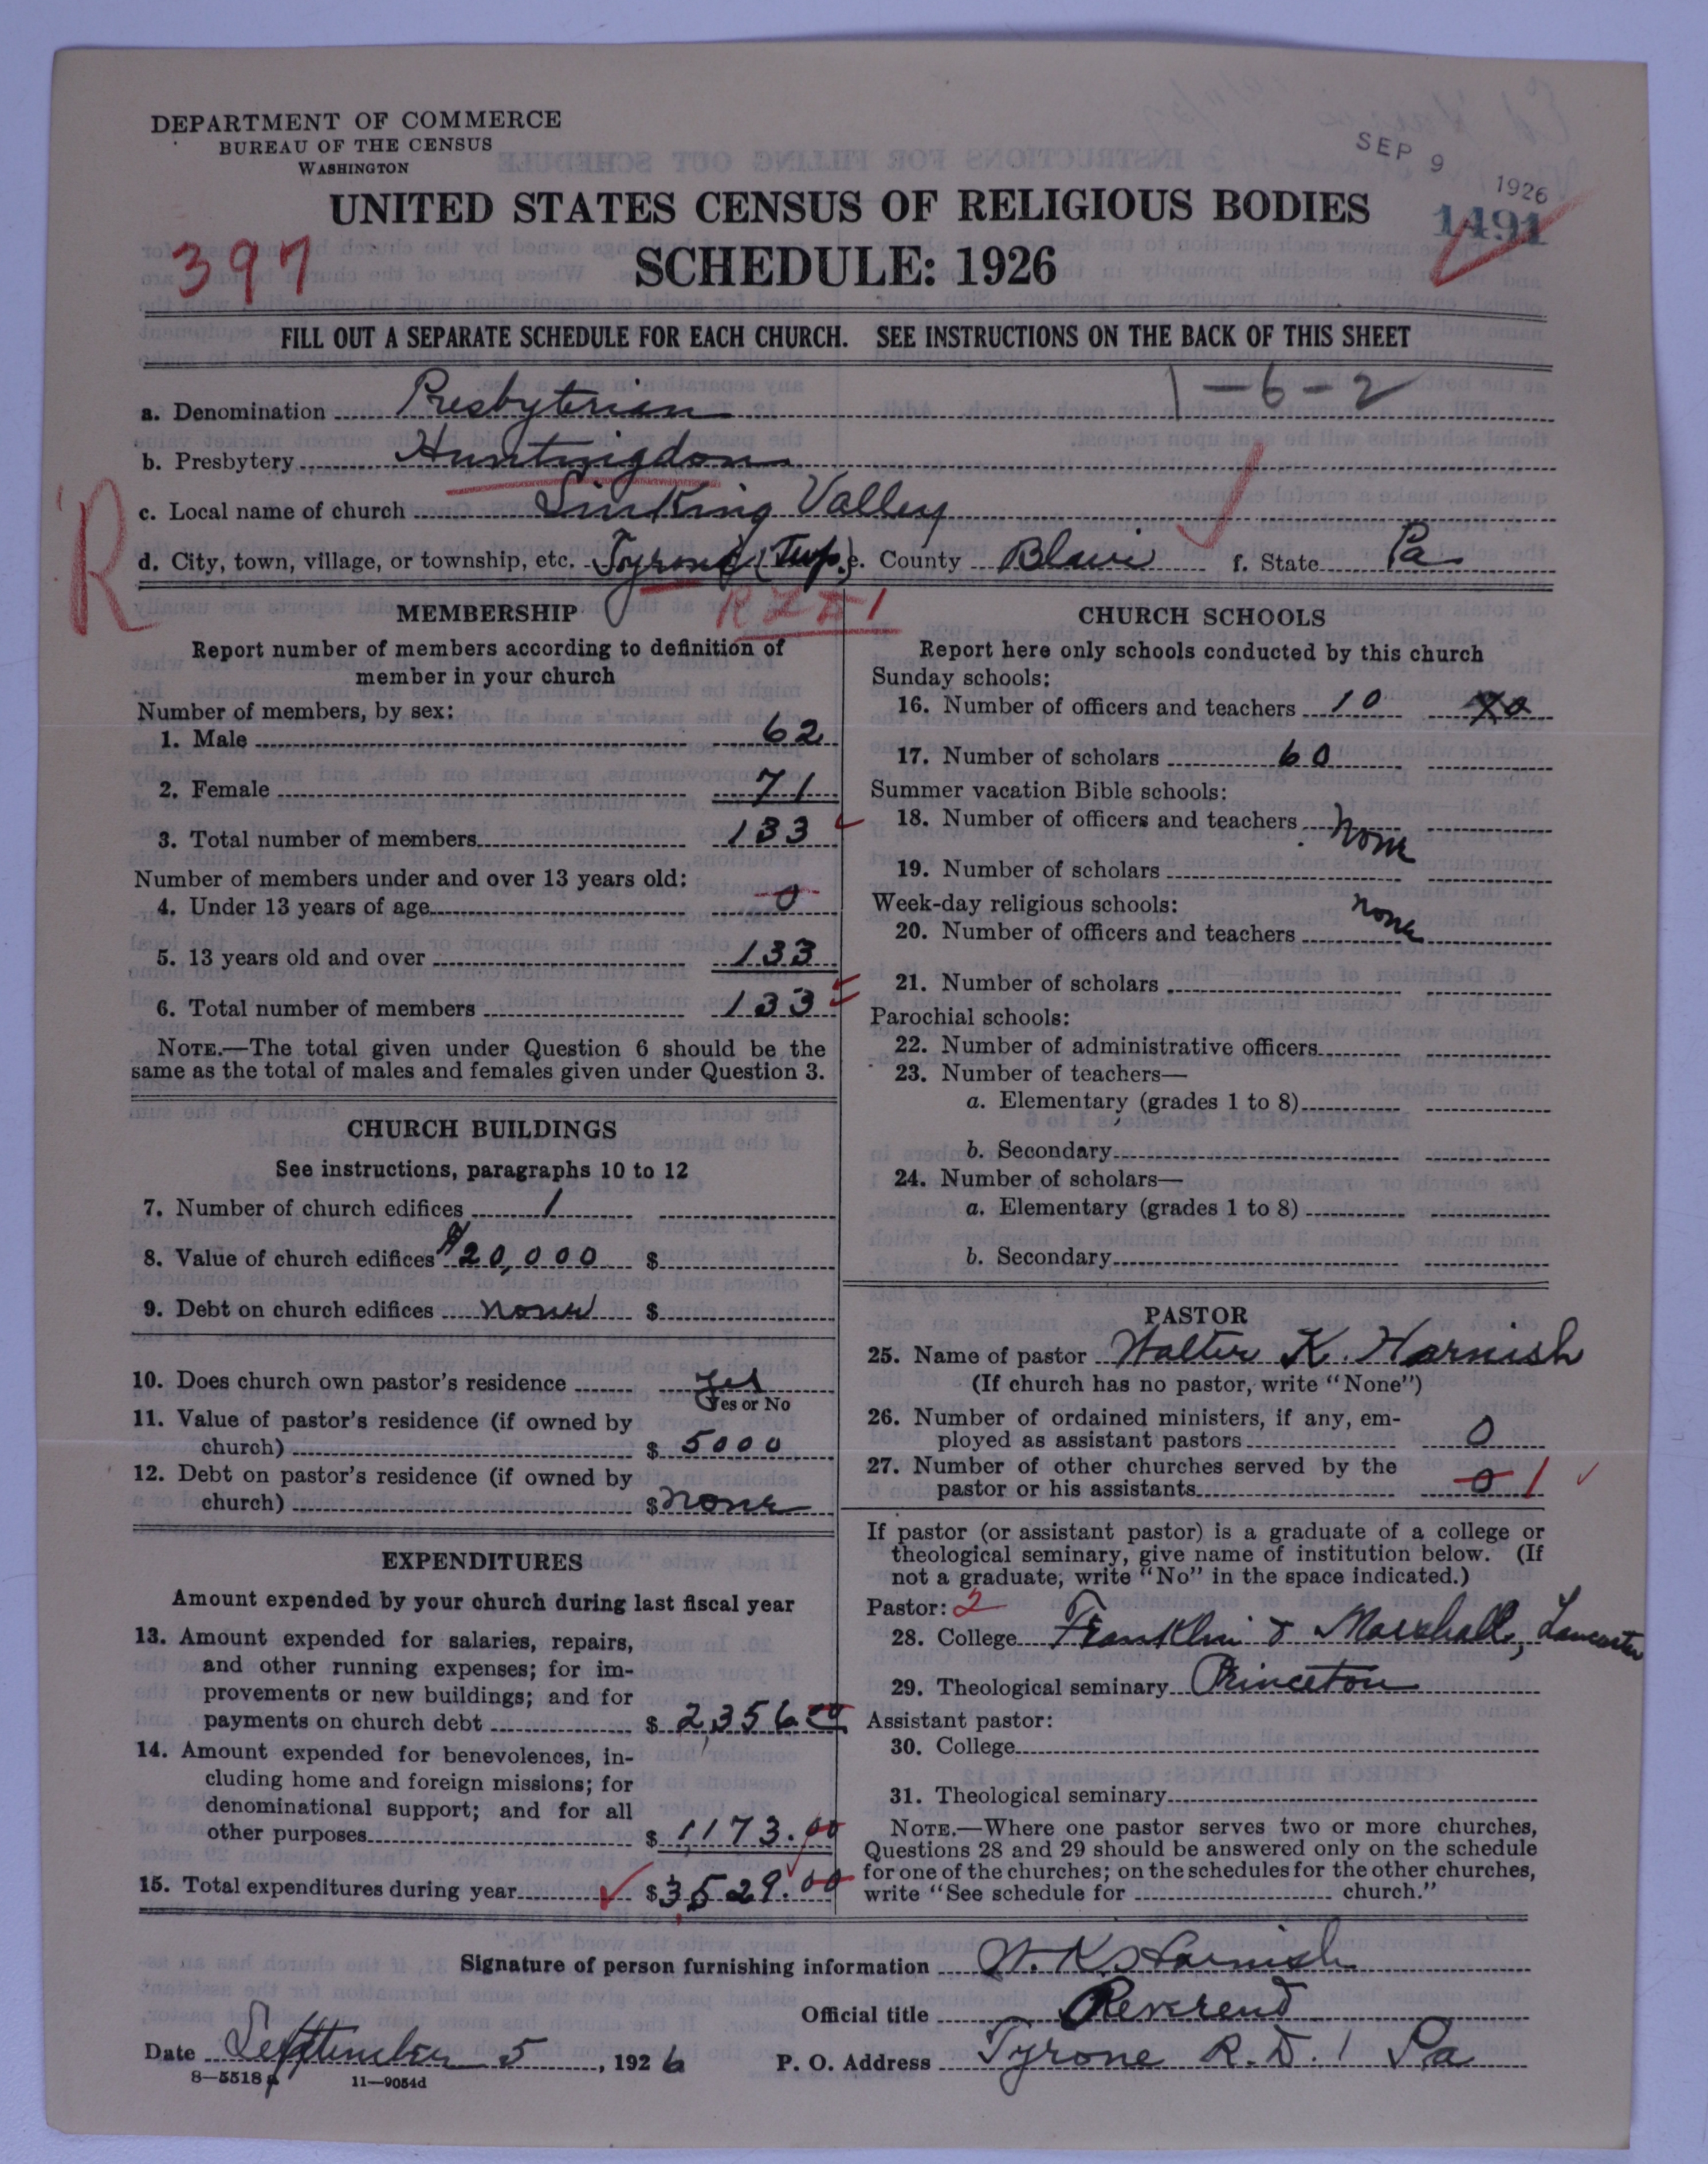 DEPARTMENT OF COMMERCE
BUREAU OF THE CENSUS
WASHINGTON
SEP 9 1926
UNITED STATES CENSUS OF RELIGIOUS BODIES
1491
397
SCHEDULE: 1926
FILL OUT A SEPARATE SCHEDULE FOR EACH CHURCH. SEE INSTRUCTIONS ON THE BACK OF THIS SHEET
1-6-2
a. Denomination Presbyterian
b. Presbytery Huntingdon
R
c. Local name of church Sinking Valley
d. City, town, village, or township, etc. Tyrone (Twp.) e. County Blair f. State Pa
MEMBERSHIP
Report number of members according to definition of
member in your church
Number of members, by sex:
1. Male 62
2. Female 71
3. Total number of members 133
Number of members under and over 13 years old:
4. Under 13 years of age 0
5. 13 years old and over 133
6. Total number of members 133
NOTE.—The total given under Question 6 should be the
same as the total of males and females given under Question 3.
CHURCH BUILDINGS
See instructions, paragraphs 10 to 12
7. Number of church edifices 1
8. Value of church edifices $20,000 $
9. Debt on church edifices none $
10. Does church own pastor's residence yes
Yes or No
11. Value of pastor's residence (if owned by
church) $ 5000
12. Debt on pastor's residence (if owned by
church) $ none
EXPENDITURES
Amount expended by your church during last fiscal year
13. Amount expended for salaries, repairs,
and other running expenses; for im-
provements or new buildings; and for
payments on church debt $ 2,356.00
14. Amount expended for benevolences, in-
cluding home and foreign missions; for
denominational support; and for all
other purposes $ 1,173.00
15. Total expenditures during year $3,529.00
CHURCH SCHOOLS
Report here only schools conducted by this church
Sunday schools:
16. Number of officers and teachers 10
17. Number of scholars 60
Summer vacation Bible schools:
18. Number of officers and teachers none
19. Number of scholars
Week-day religious schools:
20. Number of officers and teachers none
21. Number of scholars
Parochial schools:
22. Number of administrative officers
23. Number of teachers—
a. Elementary (grades 1 to 8)
b. Secondary
24. Number of scholars—
a. Elementary (grades 1 to 8)
b. Secondary
PASTOR
25. Name of pastor Walter K. Harnish
(If church has no pastor, write "None")
26. Number of ordained ministers, if any, em-
ployed as assistant pastors 0
27. Number of other churches served by the
pastor or his assistants 0 1
If pastor (or assistant pastor) is a graduate of a college or
theological seminary, give name of institution below. (If
not a graduate, write "No" in the space indicated.)
Pastor: 2
28. College Franklin & Marshall, Lancaster
29. Theological seminary Princeton
Assistant pastor:
30. College
31. Theological seminary
NOTE.—Where one pastor serves two or more churches,
Questions 28 and 29 should be answered only on the schedule
for one of the churches; on the schedules for the other churches,
write "See schedule for church."
Signature of person furnishing information W. K. Harnish
Official title Reverend
Date September 5, 1926 P. O. Address Tyrone R.D. 1 Pa
8—5518 p 11—9054d